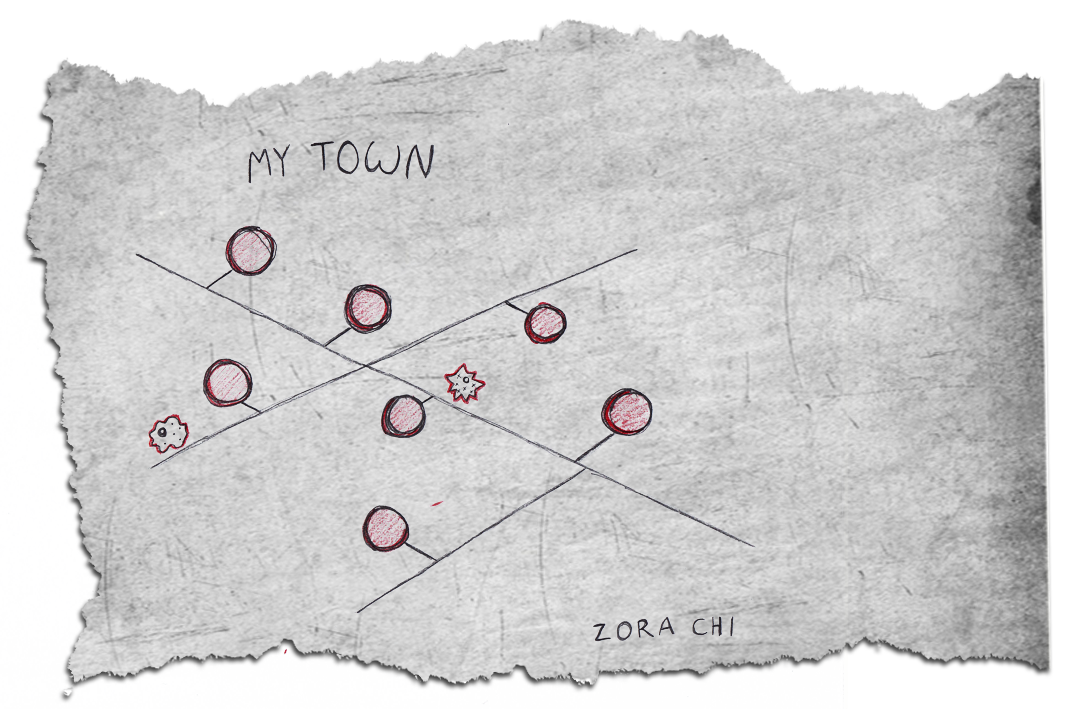 MY TOWN
ZORA CHI